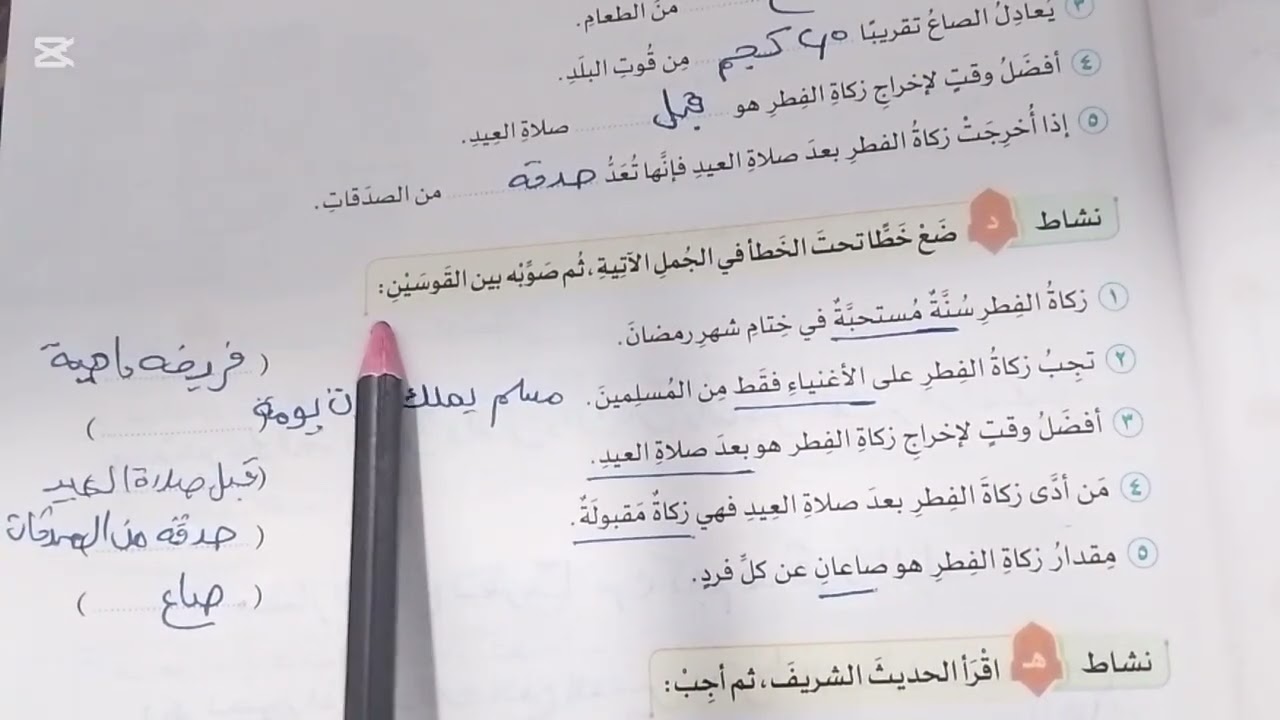 من الطعامِ.
٣ يُعادِلُ الصاعُ تقريبًا ٢,٥ كجم مِن قُوتِ البلَدِ.
٤ أفضَلُ وقتٍ لإخراجِ زكاةِ الفِطرِ هو قبل صلاةِ العِيدِ.
٥ إذا أُخرِجَتْ زكاةُ الفطرِ بعدَ صلاةِ العيدِ فإنَّها تُعَدُّ صدقة من الصدَقاتِ.
نشاط د ضَعْ خَطًّا تحتَ الخَطأ في الجُملِ الآتِيةِ، ثُم صَوِّبْه بين القَوسَيْنِ:
١ زكاةُ الفِطرِ سُنَّةٌ مُستحبَّةٌ في خِتامِ شهرِ رمضانَ.
(فريضة واجبة
٢ تجِبُ زكاةُ الفِطرِ على الأغنياءِ فقَط مِن المُسلِمينَ. مسلم يملك يومه
( )
٣ أفضَلُ وقتٍ لإخراجِ زكاةِ الفِطر هو بعدَ صلاةِ العيدِ.
(قبل صلاة العيد
٤ مَن أدَّى زكاةَ الفِطرِ بعدَ صلاةِ العِيدِ فهي زكاةٌ مَقبولَةٌ.
( صدقة من الصدقات
٥ مِقدارُ زكاةِ الفِطرِ هو صاعانِ عن كلِّ فردٍ.
( صاع )
نشاط هـ اقْرَأ الحديثَ الشريفَ، ثم أجِبْ: